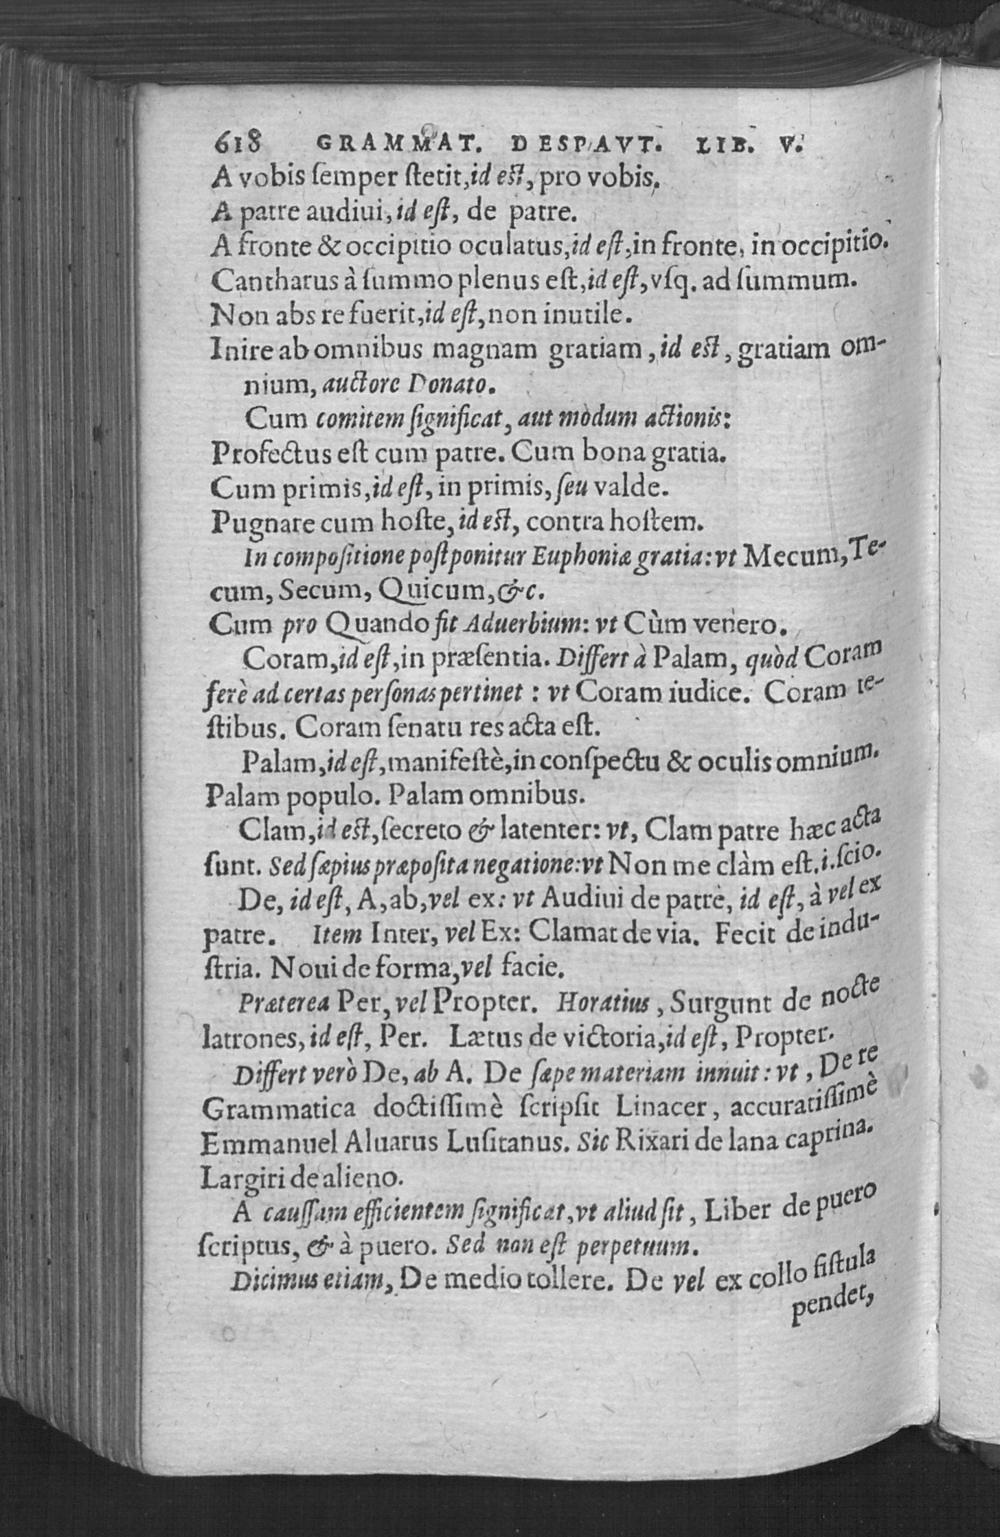 618 GRAMMAT. DESPAVT. LIB. V.
A vobis ſemper ſtetit, id eſt, pro vobis.
A patre audiui, id eſt, de patre.
A fronte & occipitio oculatus, id eſt, in fronte, in occipitio.
Cantharus à ſummo plenus eſt, id eſt, vſq. ad ſummum.
Non abs re fuerit, id eſt, non inutile.
Inire ab omnibus magnam gratiam, id eſt, gratiam om-
nium, auctore Donato.
Cum comitem ſignificat, aut modum actionis:
Profectus eſt cum patre. Cum bona gratia.
Cum primis, id eſt, in primis, ſeu valde.
Pugnare cum hoſte, id eſt, contra hoſtem.
In compoſitione poſtponitur Euphoniæ gratia: vt Mecum, Te-
cum, Secum, Quicum, &c.
Cum pro Quando fit Aduerbium: vt Cùm venero.
Coram, id eſt, in præſentia. Differt à Palam, quòd Coram
ferè ad certas perſonas pertinet : vt Coram iudice. Coram te-
ſtibus. Coram ſenatu res acta eſt.
Palam, id eſt, manifeſtè, in conſpectu & oculis omnium.
Palam populo. Palam omnibus.
Clam, id eſt, ſecreto & latenter: vt, Clam patre hæc acta
ſunt. Sed ſæpius præpoſita negatione: vt Non me clàm eſt, i. ſcio.
De, id eſt, A, ab, vel ex: vt Audiui de patre, id eſt, à vel ex
patre. Item Inter, vel Ex: Clamat de via. Fecit de indu-
ſtria. Noui de forma, vel facie.
Præterea Per, vel Propter. Horatius, Surgunt de nocte
latrones, id eſt, Per. Lætus de victoria, id eſt, Propter.
Differt verò De, ab A. De ſæpe materiam innuit: vt, De re
Grammatica doctiſſimè ſcripſit Linacer, accuratiſſimè
Emmanuel Aluarus Luſitanus. Sic Rixari de lana caprina.
Largiri de alieno.
A cauſſam efficientem ſignificat, vt aliud ſit, Liber de puero
ſcriptus, & à puero. Sed non eſt perpetuum.
Dicimus etiam, De medio tollere. De vel ex collo fiſtula
pendet,